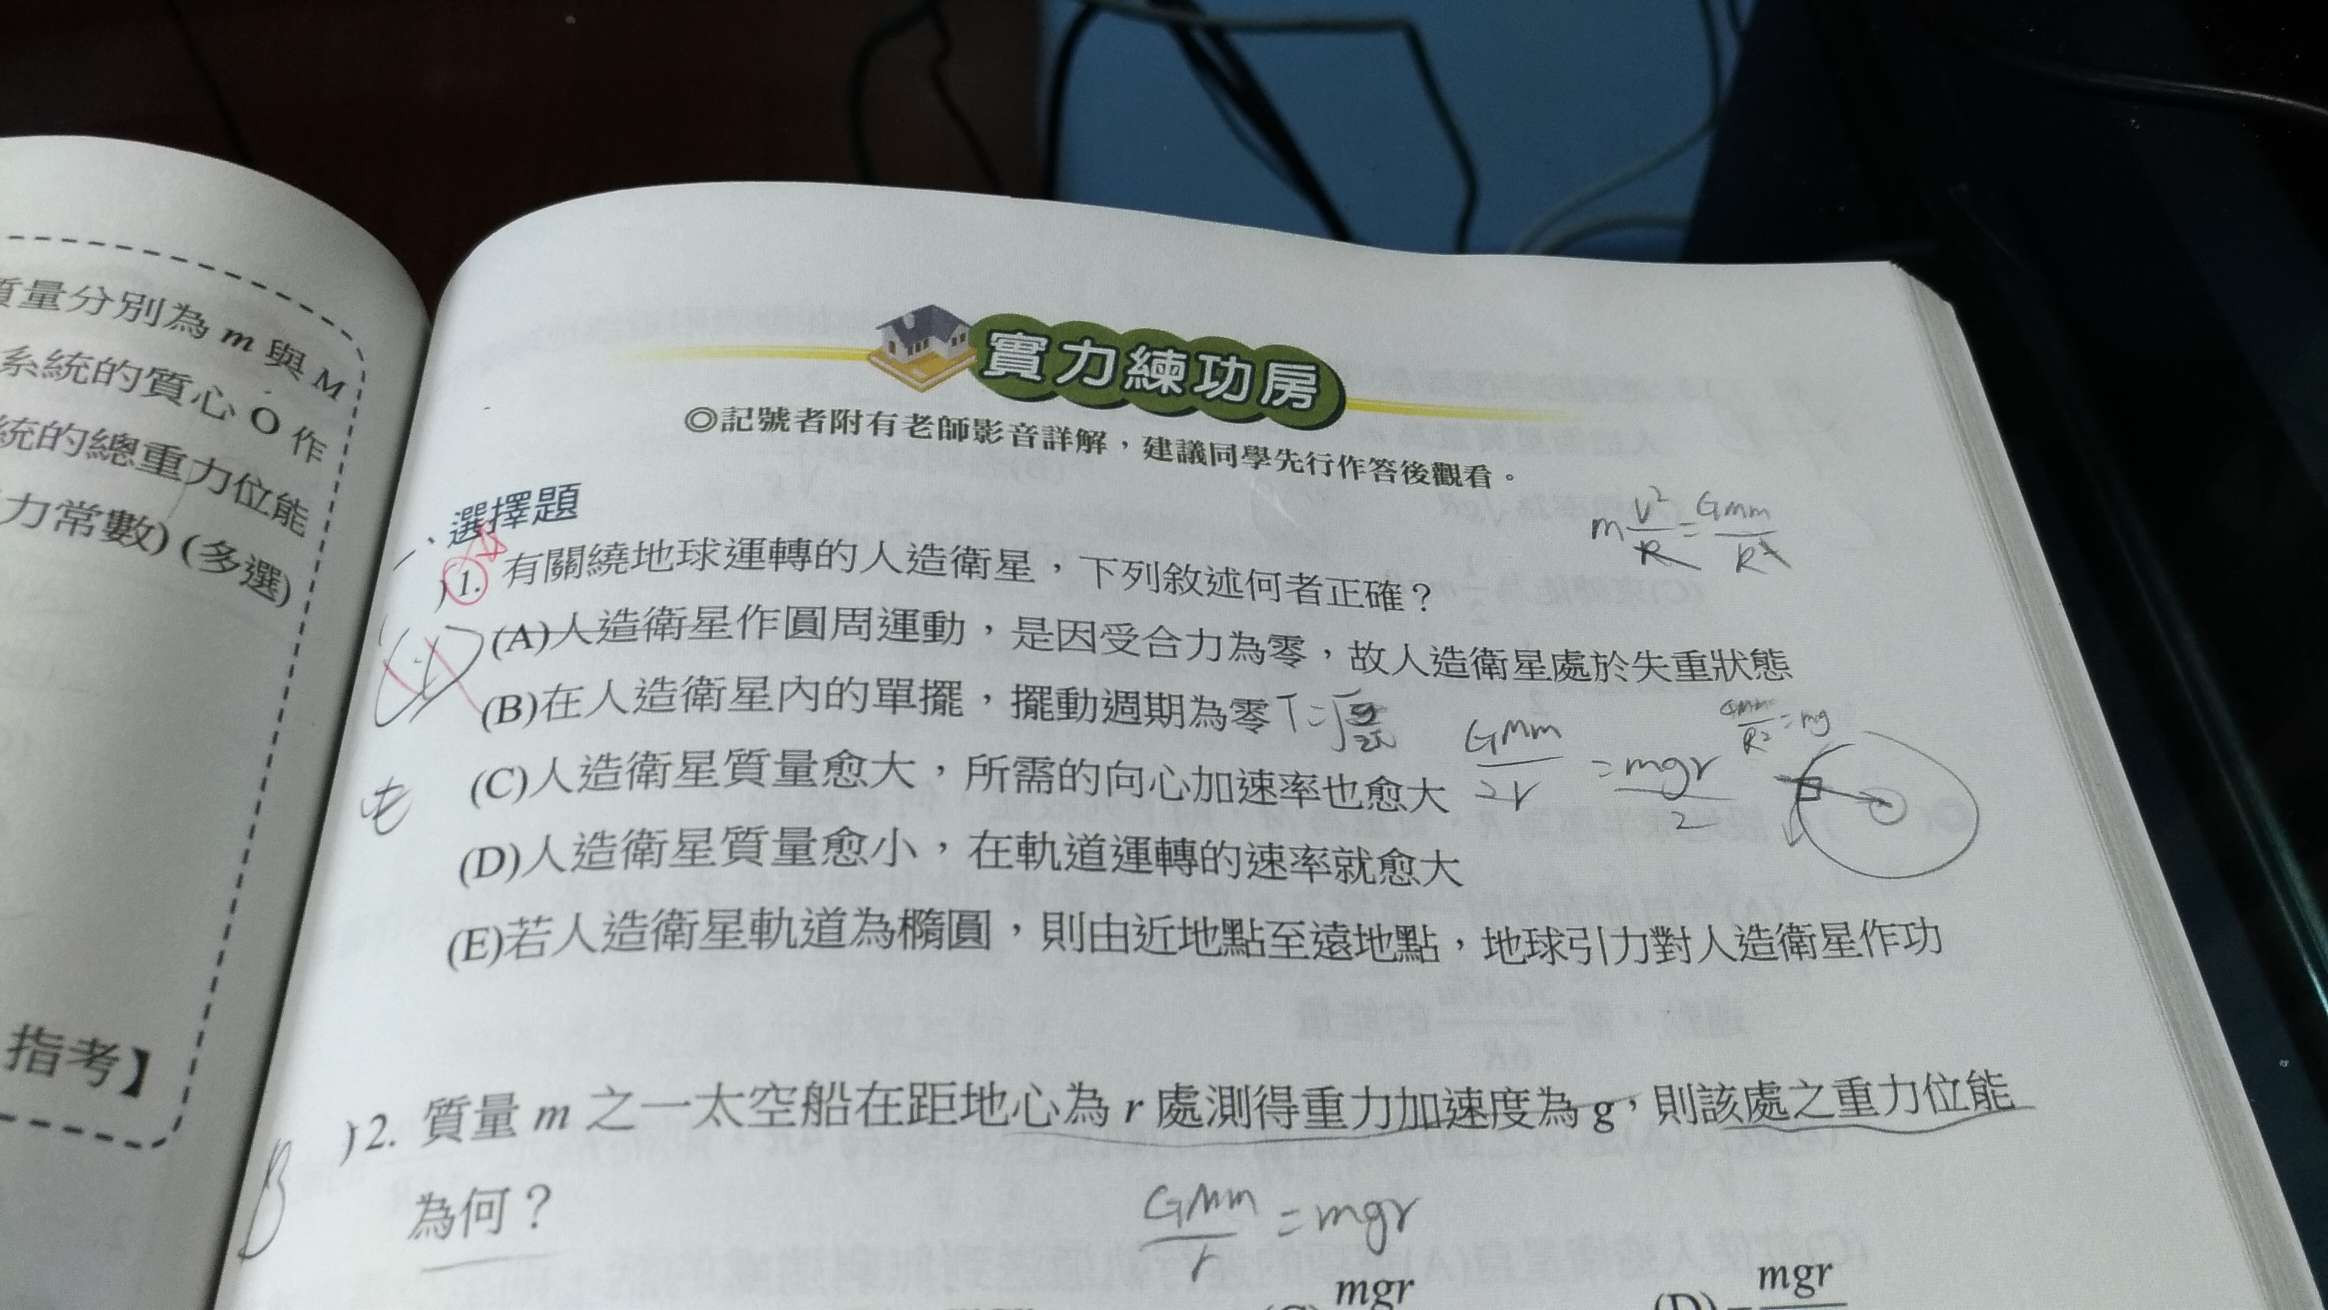 質量分別為 m 與 M
系統的質心 O 作
統的總重力位能
力常數) (多選)
指考】
實力練功房
◎記號者附有老師影音詳解，建議同學先行作答後觀看。
一、選擇題
)1. 有關繞地球運轉的人造衛星，下列敘述何者正確？
m V²/R = GMm/R²
(A)人造衛星作圓周運動，是因受合力為零，故人造衛星處於失重狀態
(B)在人造衛星內的單擺，擺動週期為零
GMm/R² = mg
(C)人造衛星質量愈大，所需的向心加速率也愈大
GMm/2r = mgr/2
(D)人造衛星質量愈小，在軌道運轉的速率就愈大
(E)若人造衛星軌道為橢圓，則由近地點至遠地點，地球引力對人造衛星作功
B )2. 質量 m 之一太空船在距地心為 r 處測得重力加速度為 g，則該處之重力位能
為何？
GMm/r = mgr
mgr
(D) - mgr